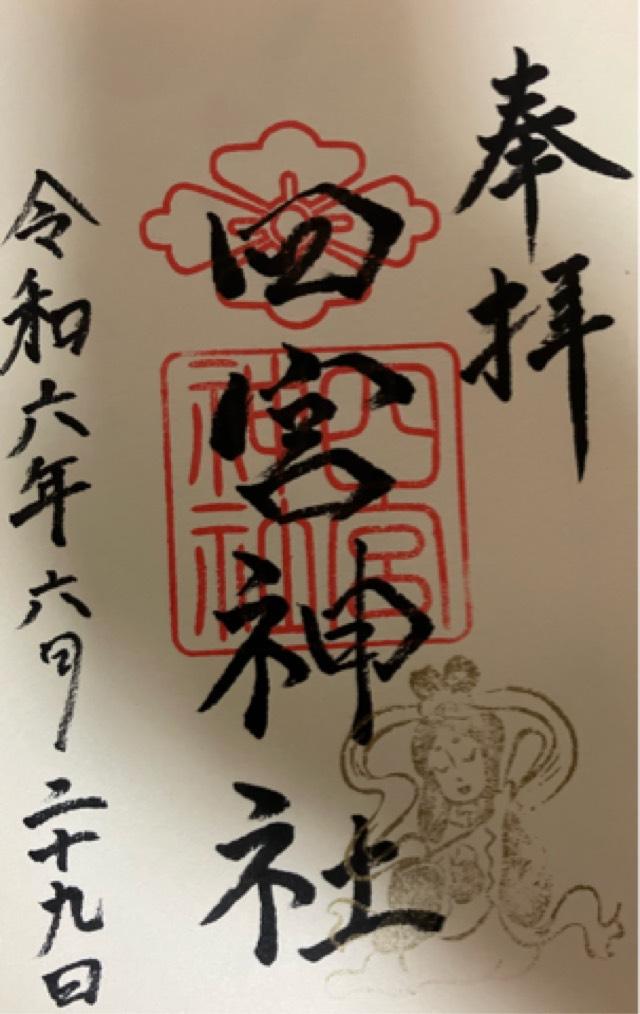 奉拝
四宮神社
四宮
神社
令和六年六月二十九日